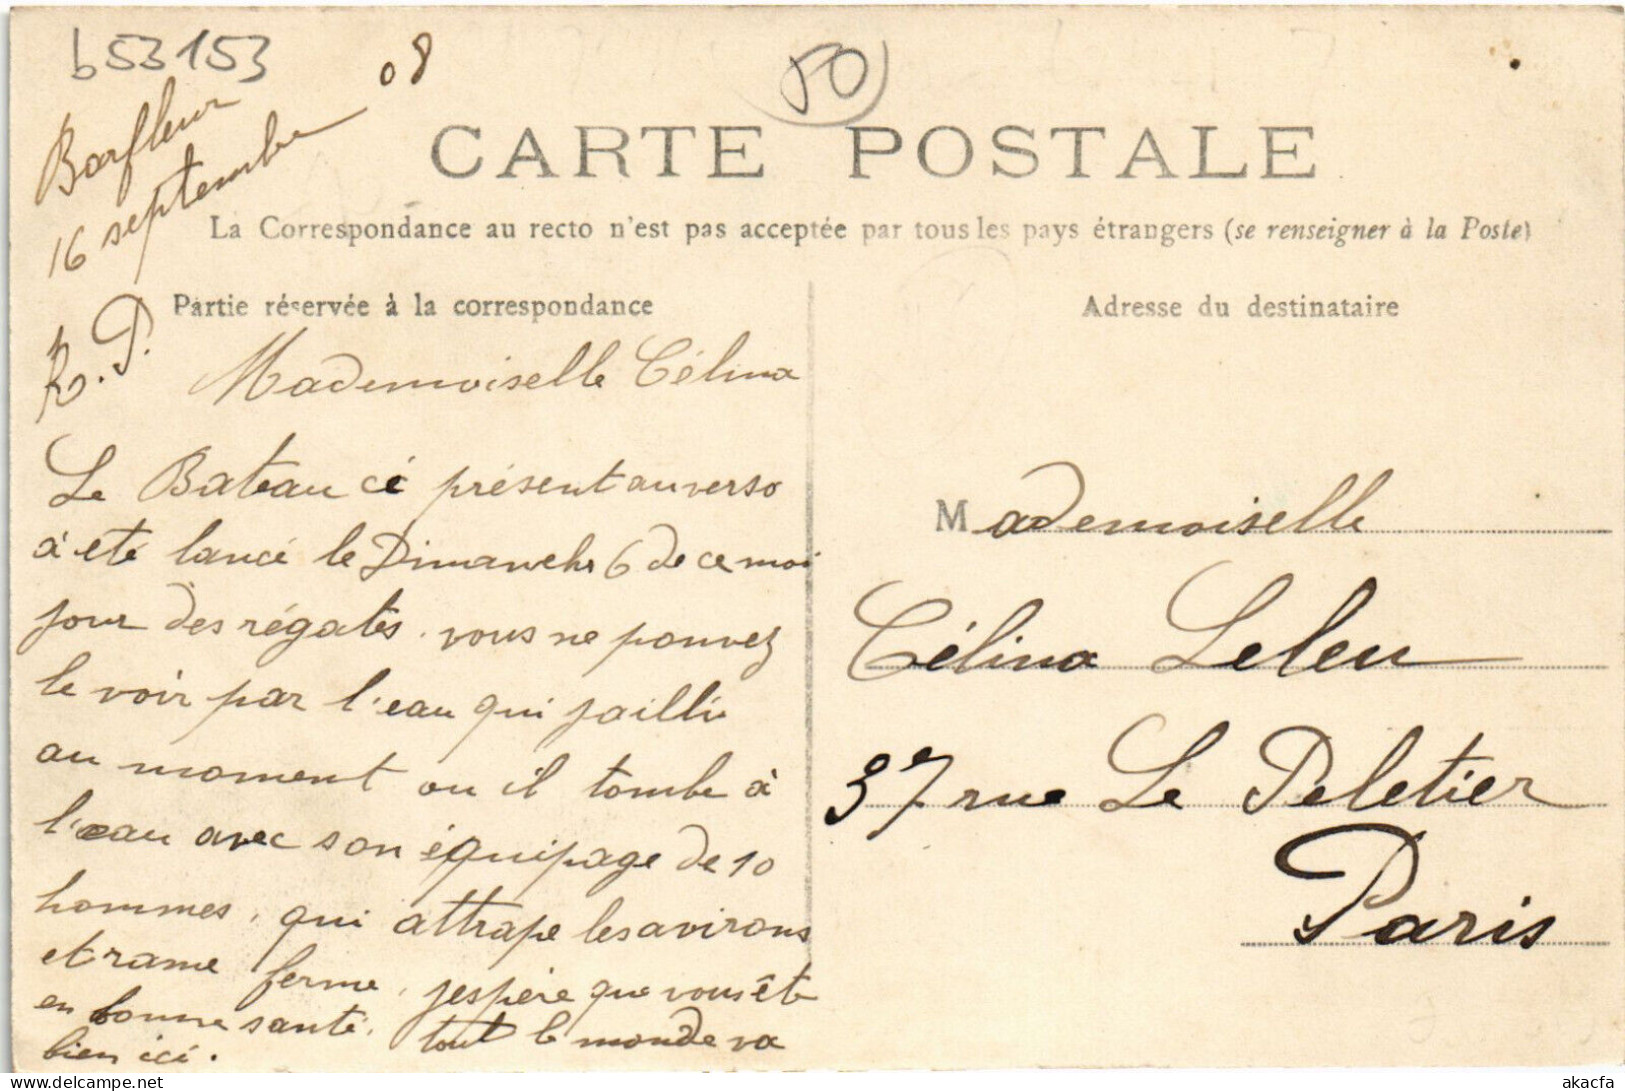 b53153
50
08
Barfleur
16 septembre
R. P.
CARTE POSTALE
La Correspondance au recto n'est pas acceptée par tous les pays étrangers (se renseigner à la Poste)
Partie réservée à la correspondance
Mademoiselle Célina
Le Bateau ci présent au verso
à été lancé le Dimanche 6 de ce moi
jour des régates. vous ne pouvez
le voir par l'eau qui jailli
au moment ou il tombe à
l'eau avec son équipage de 10
hommes, qui attrape les avirons
et rame ferme, j'espère que vous ête
en bonne santé. tout le monde va
bien ici.
Adresse du destinataire
Mademoiselle
Célina Leleu
37 rue Le Peletier
Paris
delcampe.net
akacfa